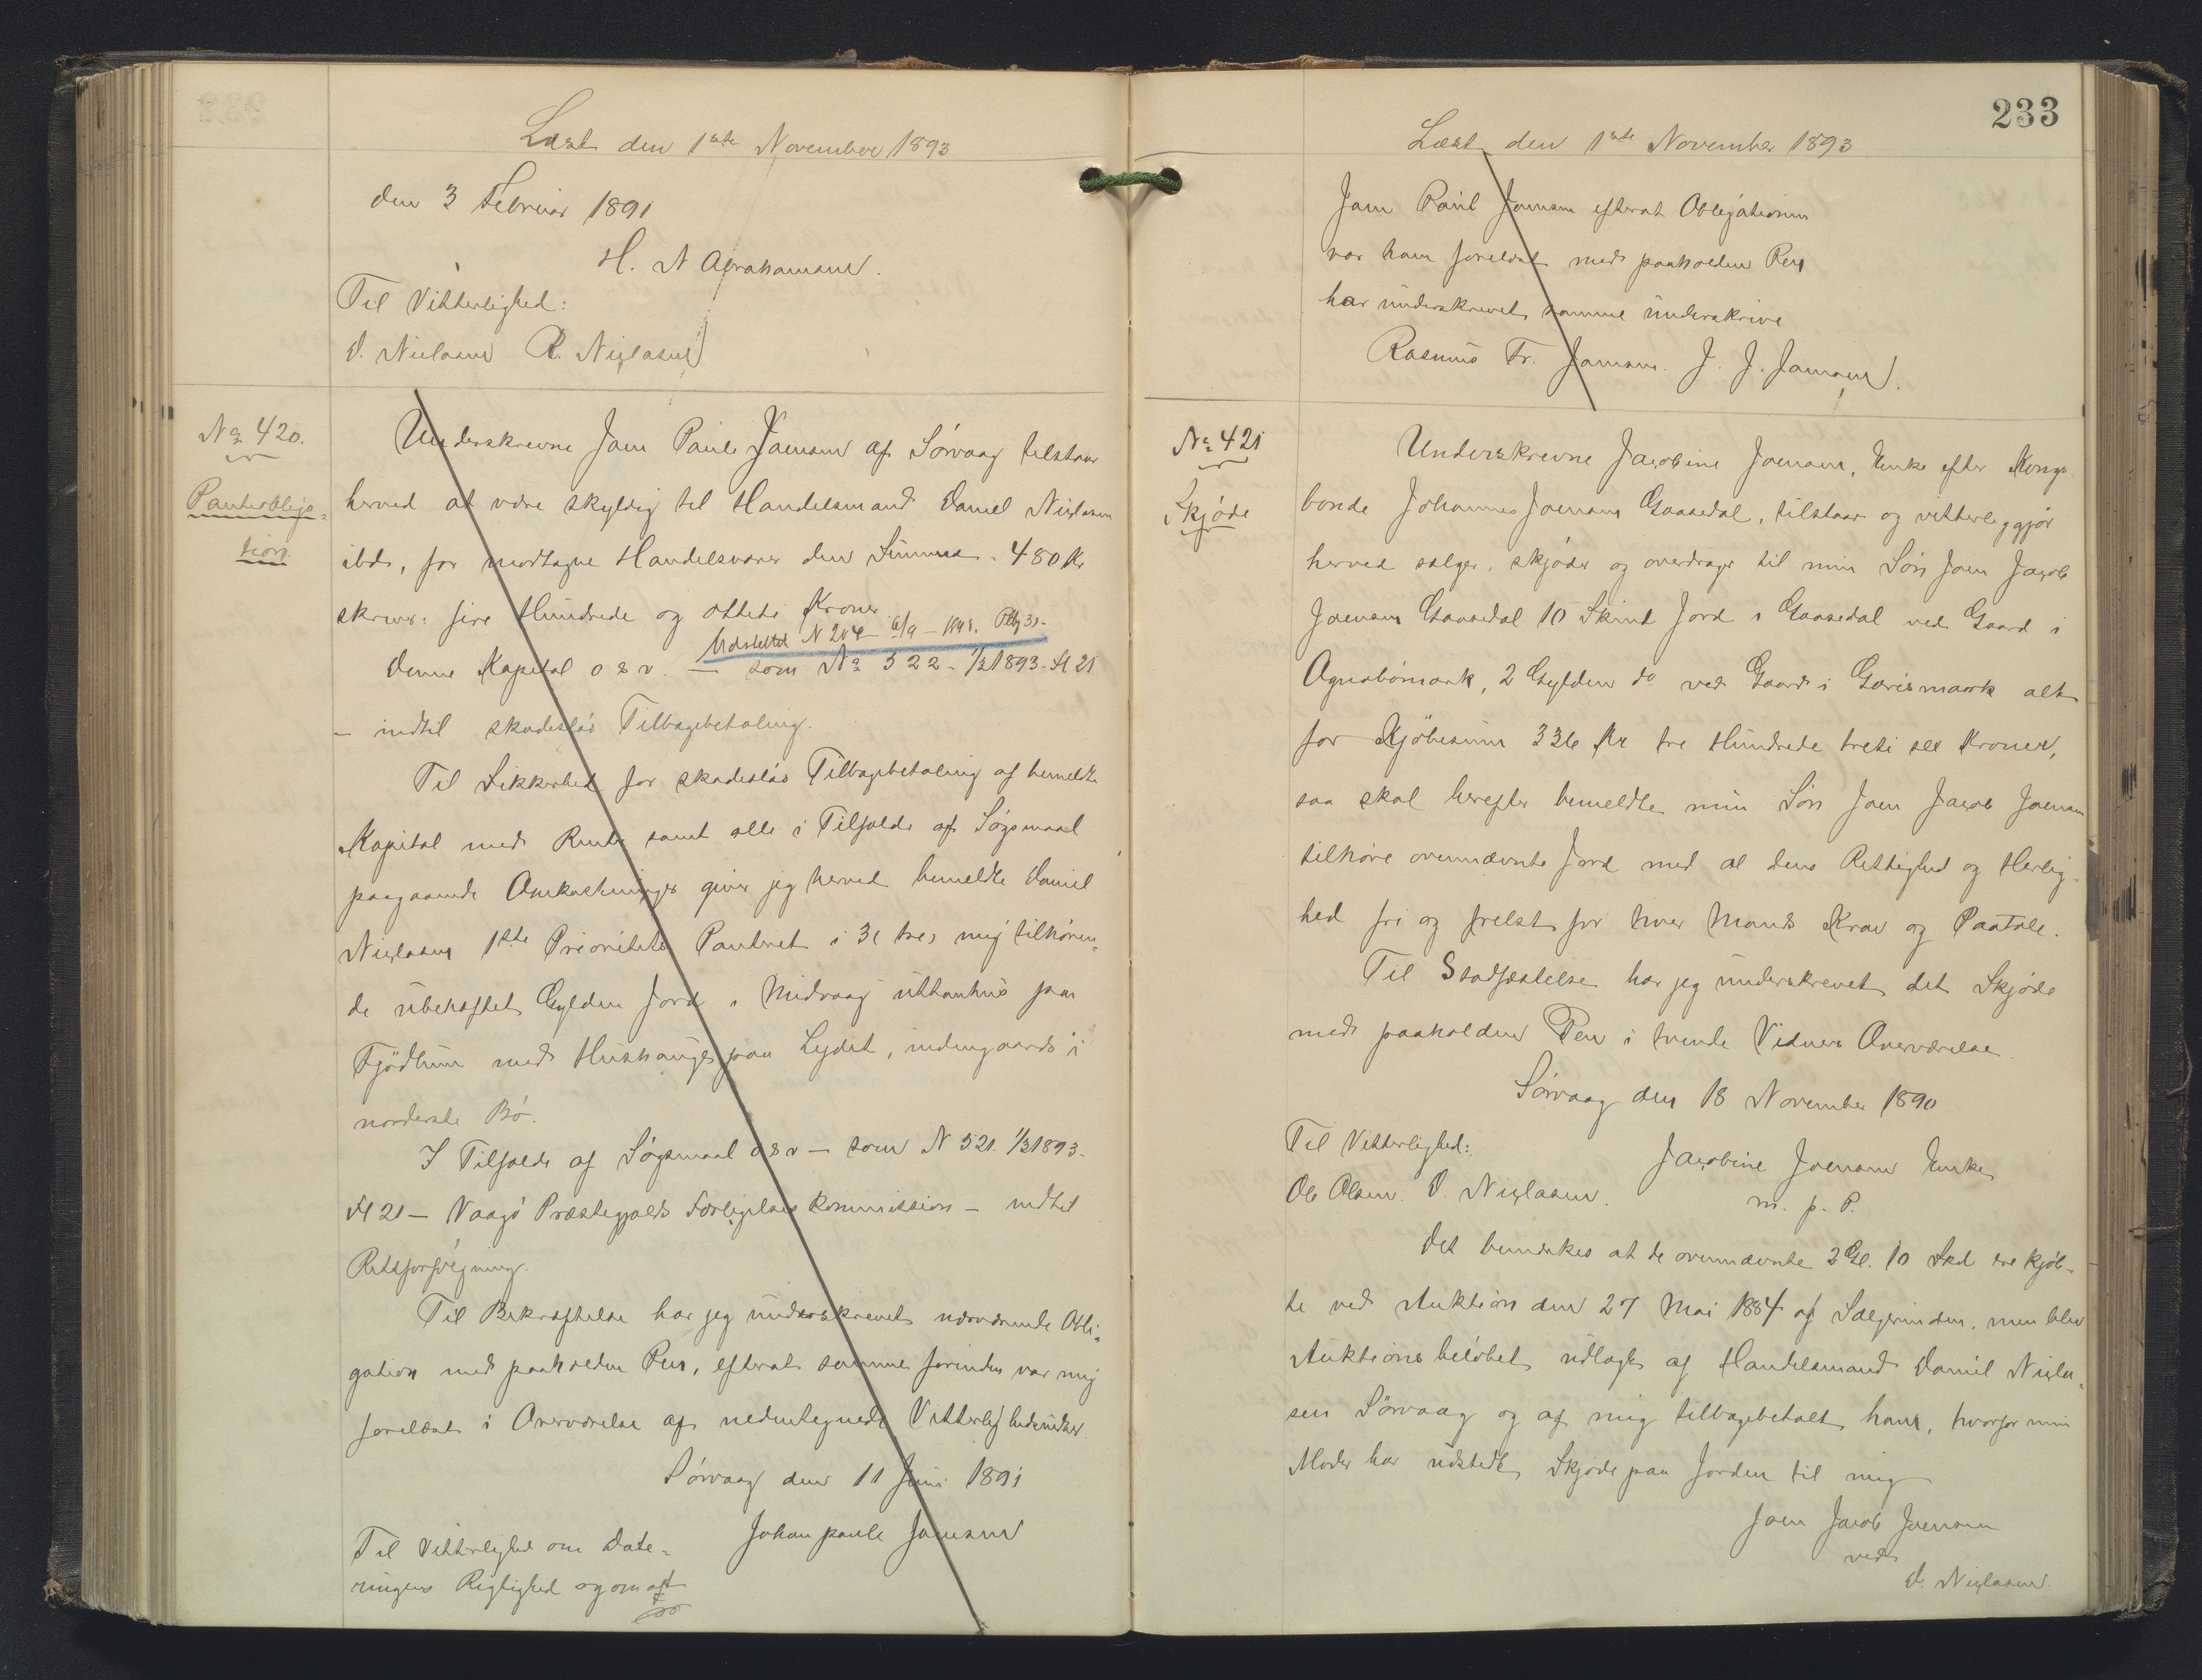 Læst den 1ste November 1893
den 3 Februar 1891
H. N Abrahamsen.
Til Vitterlighed:
D. Niclasen R. Niclasen
No 420.
Panteobliga-
tion
Underskrevne Joen Paule Joensen af Sørvaag tilstaar
herved at være skyldig til Handelsmand Daniel Niclasen
ibd., for modtagne Handelsvarer den Summa 480 Kr
skriver: fire Hundrede og otteti Kroner
Udslettet N 204
Denne Kapital o s v. — som No 322 - 1/3 1893 - H 21
— indtil skadesløs Tilbagebetaling.
Til Sikkerhed for skadesløs Tilbagebetaling af bemeldte
Kapital med Rente samt alle i Tilfælde af Søgsmaal
paagaaende Omkostninger giver jeg herved bemeldte Daniel
Niclasen 1ste Prioritets Panteret i 3 (tre) mig tilhøren-
de ubehæftet Gylden Jord i Midvaag uttanhus paa
Fjødlum med Hushauge paa Lydet, indengaards i
norderste Bø.
I Tilfælde af Søgsmaal o s v — som N 321. 1/3 1893.
H 21 — Vaagø Præstegjælds Forligelses Kommission — indtil
Retsforfølgning.
Til Bekræftelse har jeg underskrevet nærværende Obli-
gation med paaholden Pen, efterat samme forinden var mig
forelæst i Overværelse af nedentegnede Vitterlighedsvidner.
Sørvaag den 11 Juni 1891
Johan paule Joensen
Til Vitterlighed om Date-
ringens Rigtighed og om at
233
Læst den 1ste November 1893
Joen Paul Joensen efterat Obligationen
var ham forelæst med paaholden Pen
har underskrevet samme underskrive
Rasmus Fr. Joensen. J. J. Joensen.
No 421
Skjøde
Underskrevne Jacobine Joensen, Enke efter Kongs-
bonde Johannes Joensen Gaasedal, tilstaar og vitterliggjør
herved sælger, skjøder og overdrager til min Søn Joen Jacob
Joensen Gaasedal 10 Skind Jord i Gaasedal ved Gaard i
Ognabømark, 2 Gylden do ved Gaard i Gørismark alt
for Kjøbesum 336 Kr tre Hundrede treti sex Kroner,
saa skal herefter bemeldte min Søn Joen Jacob Joensen
tilhøre ovennævnte Jord med al dens Rettighed og Herlig-
hed fri og frelst for hver Mands Krav og Paatale.
Til Stadfæstelse har jeg underskrevet det Skjøde
med paaholden Pen i tvende Vidners Overværelse
Sørvaag den 18 November 1890
Til Vitterlighed:
Jacobine Joensen Enke
Ole Olsen. D. Niclasen.
m. p. P.
Det bemærkes at de ovennævnte 2 Gl. 10 Skd ere kjøb-
te ved Auktion den 27 Mai 1884 af Sælgerinden, men blev
Auktionsbeløbet udlagt af Handelsmand Daniel Nicla-
sen Sørvaag og af mig tilbagebetalt ham, hvorfor min
Moder har udstedt Skjøde paa Jorden til mig
Joen Jacob Joensen
ved
D. Niclasen.